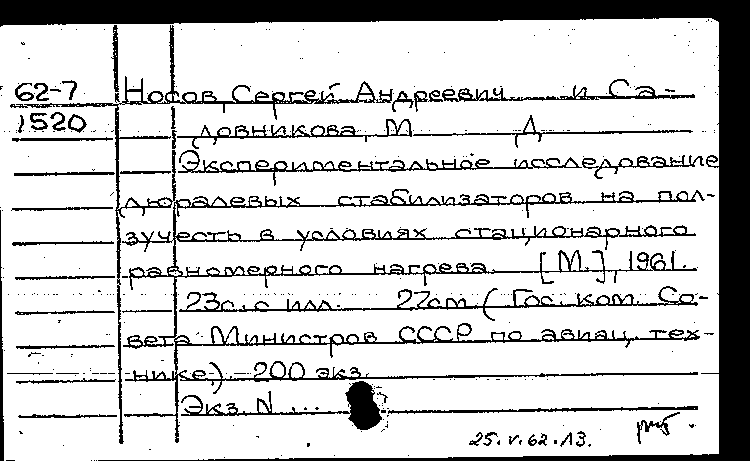 62-7 Носов, Сергей Андреевич и Са-
1520 довникова, М. Д.
Экспериментальное исследование
дюралевых стабилизаторов на пол-
зучесть в условиях стационарного
равномерного нагрева. [М.], 1961.
23с. с илл. 27см. (Гос. ком. Со-
вета Министров СССР по авиац. тех-
нике.) 200 экз.
Экз. N ...
25.V.62.Л3.